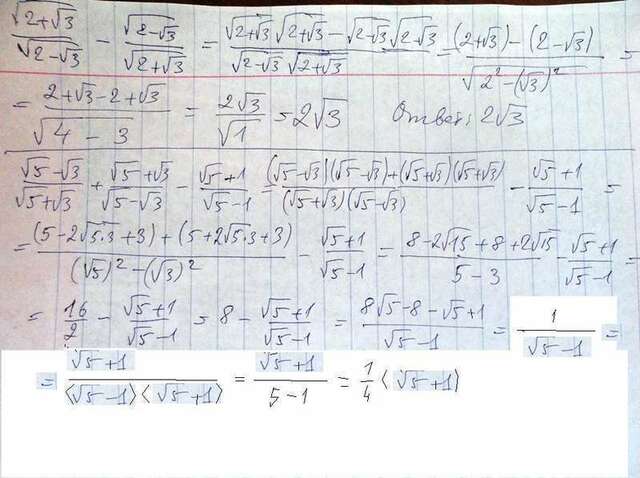 √(2+√3)/√(2-√3) - √(2-√3)/√(2+√3) = (√(2+√3)√(2+√3) - √(2-√3)√(2-√3))/(√(2-√3)√(2+√3)) = ((2+√3)-(2-√3))/√(2²-(√3)²) =
= (2+√3-2+√3)/√(4-3) = 2√3/√1 = 2√3 Ответ: 2√3
(√5-√3)/(√5+√3) + (√5+√3)/(√5-√3) - (√5+1)/(√5-1) = ((√5-√3)(√5-√3)+(√5+√3)(√5+√3))/((√5+√3)(√5-√3)) - (√5+1)/(√5-1) =
= ((5-2√5·3+3)+(5+2√5·3+3))/((√5)²-(√3)²) - (√5+1)/(√5-1) = (8-2√15+8+2√15)/(5-3) - (√5+1)/(√5-1) =
= 16/2 - (√5+1)/(√5-1) = 8 - (√5+1)/(√5-1) = (8√5-8-√5+1)/(√5-1) = 1/(√5-1) =
= (√5+1)/((√5-1)(√5+1)) = (√5+1)/(5-1) = 1/4(√5+1)